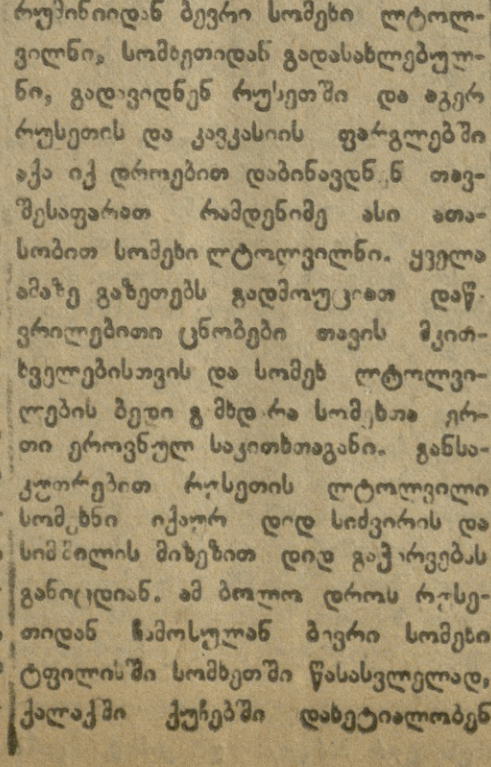 რუმინიიდან ბევრი სომეხი ლტოლ-
ვილნი, სომხეთიდან გადასახლებულ-
ნი, გადავიდნენ რუსეთში და აგერ
რუსეთის და კავკასიის ფარგლებში
აქა იქ დროებით დაბინავდნენ თავ-
შესაფარათ რამდენიმე ასი ათა-
სობით სომეხი ლტოლვილნი. ყველა
ამაზე გაზეთებს გადმოუციათ დაწ-
ვრილებითი ცნობები თავის მკით-
ხველებისთვის და სომეხ ლტოლვი-
ლების ბედი გამხდარა სომეხთა ერ-
თი ეროვნულ საკითხთაგანი. განსა-
კუთრებით რუსეთის ლტოლვილი
სომეხნი იქაურ დიდ სიძვირის და
სიმშილის მიზეზით დიდ გაჭირვებას
განიცდიან. ამ ბოლო დროს რუსე-
თიდან ჩამოსულან ბევრი სომეხი
ტფილისში სომხეთში წასასვლელად,
ქალაქში ქუჩებში დახეტიალობენ